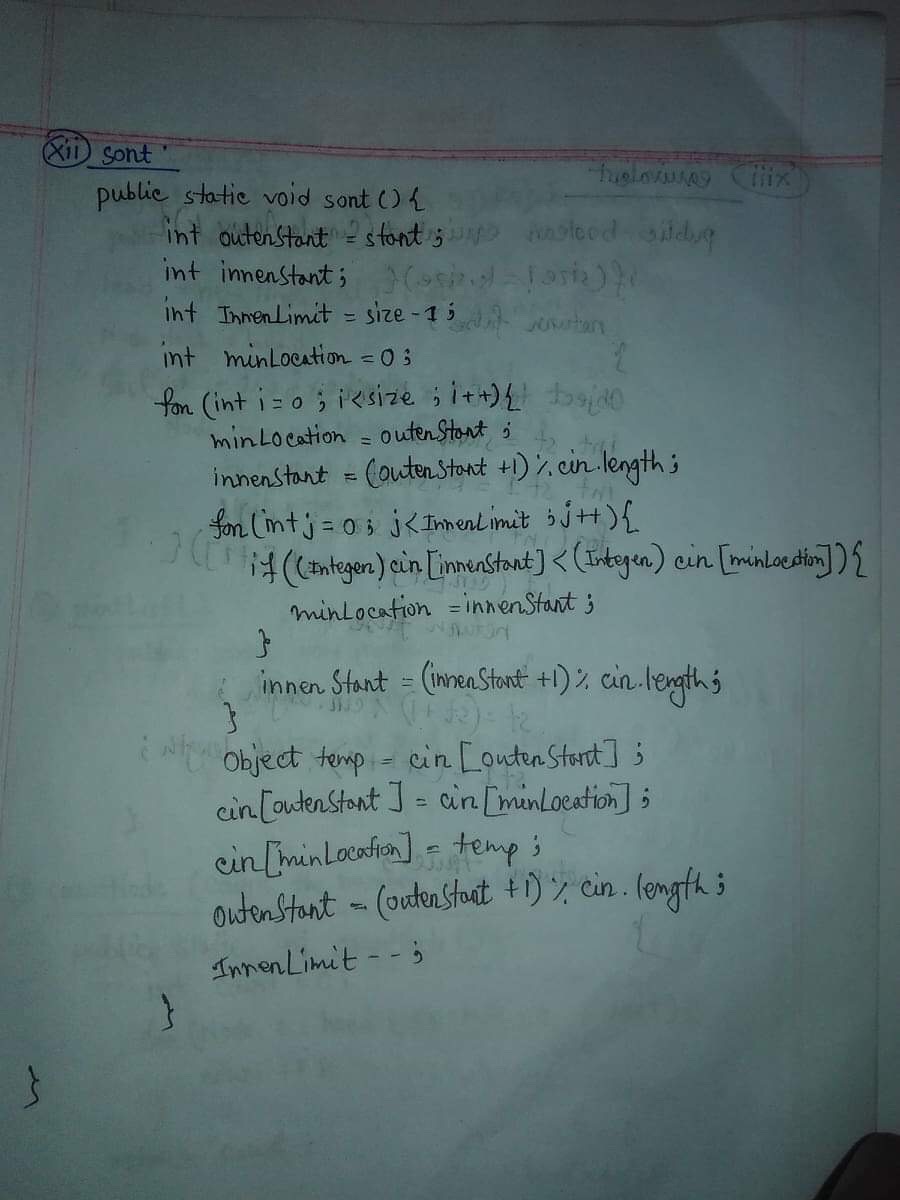 xii) sort
public static void sort () {
int outerStart = start ;
int innerStart ;
int InnerLimit = size - 1 ;
int minLocation = 0 ;
for (int i = 0 ; i < size ; i++) {
minLocation = outerStart ;
innerStart = (outerStart +1) % cir.length ;
for (int j = 0 ; j < InnerLimit ; j++) {
if ((Integer) cir [innerStart] < (Integer) cir [minLocation]) {
minLocation = innerStart ;
}
innerStart = (innerStart +1) % cir.length ;
}
Object temp = cir [outerStart] ;
cir [outerStart] = cir [minLocation] ;
cir [minLocation] = temp ;
outerStart = (outerStart +1) % cir.length ;
InnerLimit -- ;
}
}